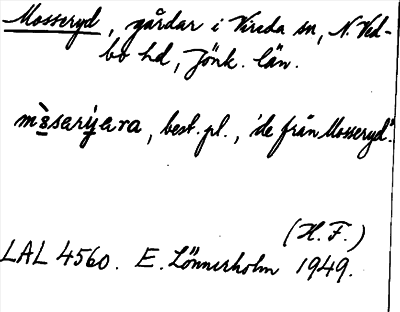 Mosseryd, gårdar i Vireda sn, N. Ved-
bo hd, Jönk. län.
best. pl., 'de från Mosseryd'.
(H. F.)
LAL 4560. E. Lönnerholm 1949.